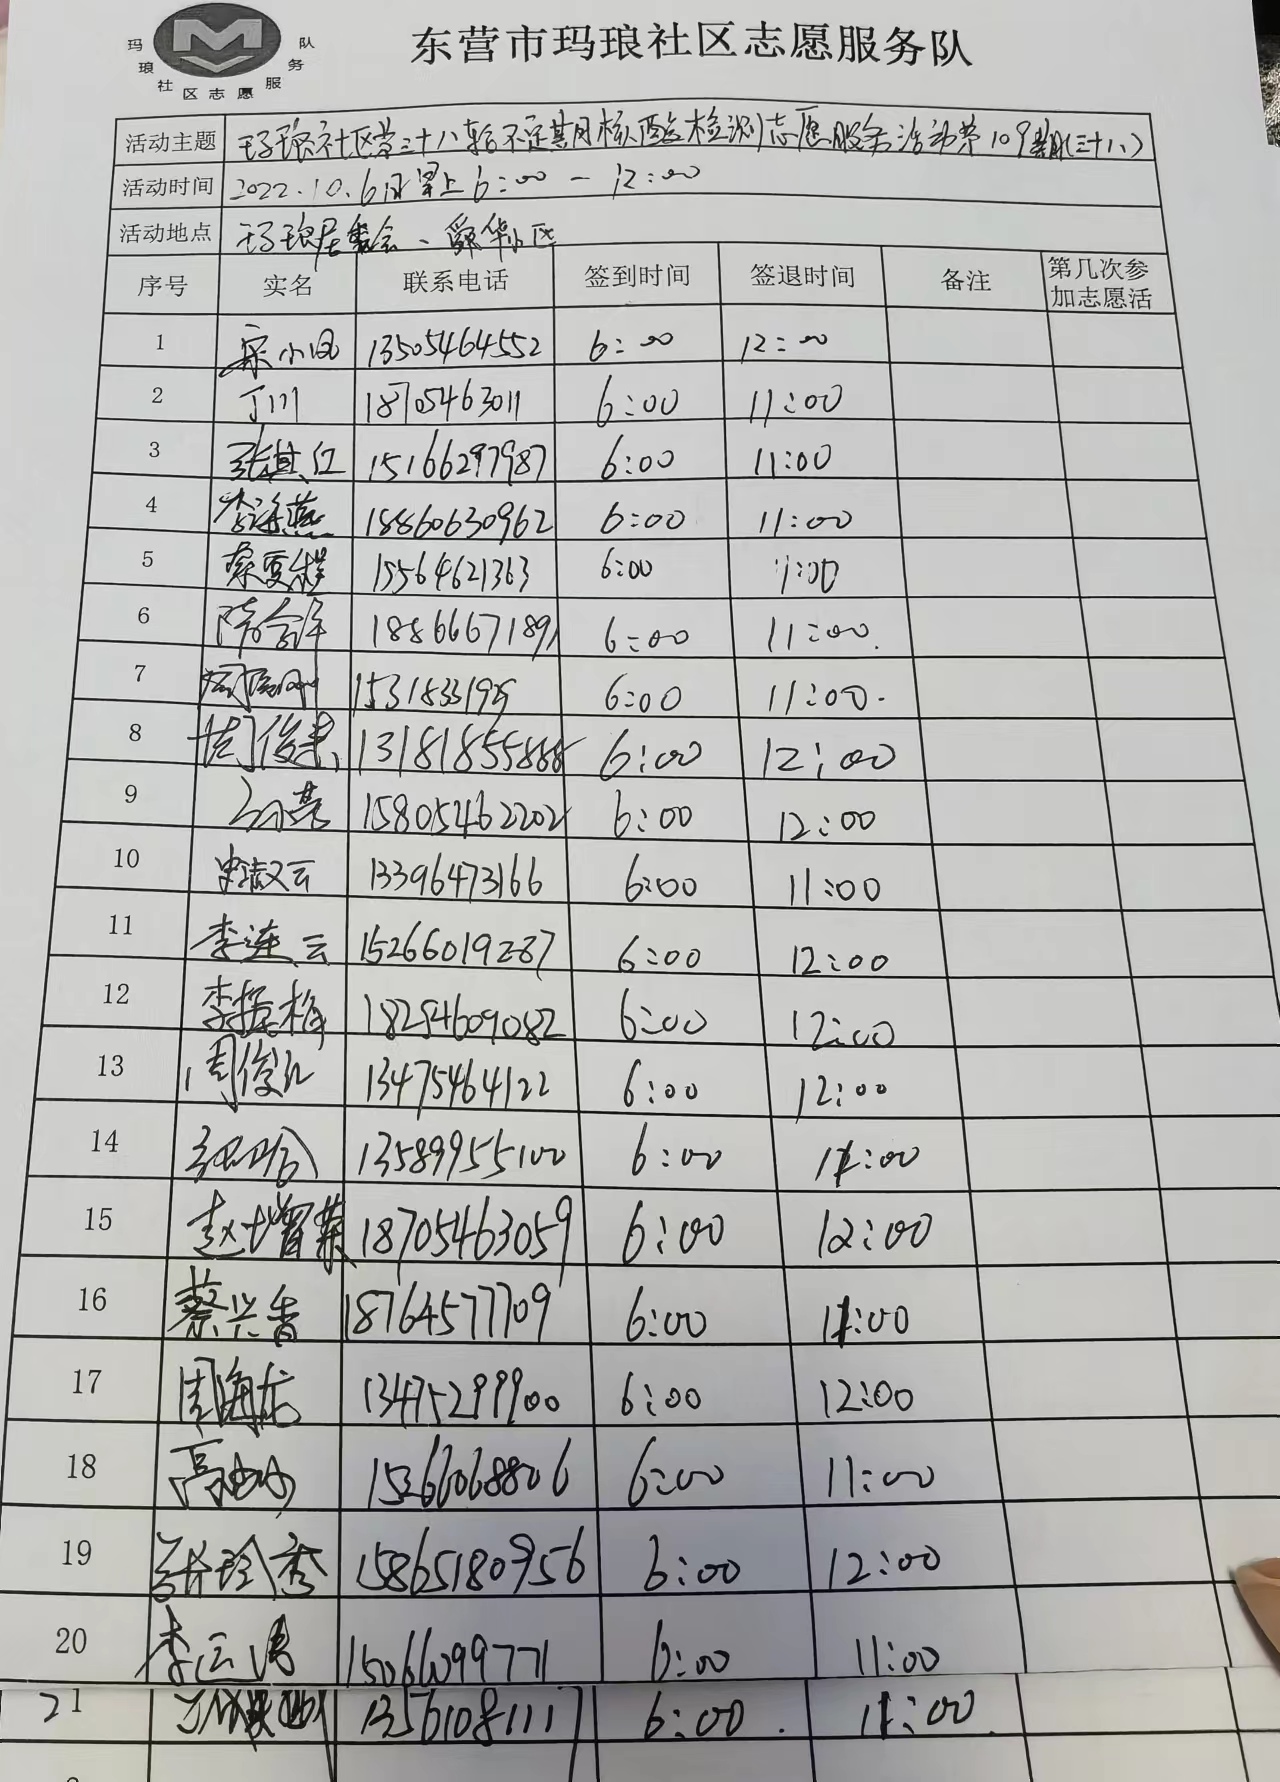 玛琅社区志愿服务队
东营市玛琅社区志愿服务队
活动主题 玛琅社区第三十八轮不定期核酸检测志愿服务活动第109期(三十八)
活动时间 2022.10.6日早上6:00-12:00
活动地点 玛琅居委会、舜华小区
序号 实名 联系电话 签到时间 签退时间 备注 第几次参加志愿活
1 宋小凤 13505464552 6:00 12:00
2 丁川 18705463011 6:00 11:00
3 张其红 15166297987 6:00 11:00
4 李泽燕 18860630962 6:00 11:00
5 15564621363 6:00 11:00
6 隋合年 18866671891 6:00 11:00.
7 6:00 11:00.
8 周俊美 13181855888 6:00 12:00
9 15805462202 6:00 12:00
10 史淑云 13396473166 6:00 11:00
11 李连云 15266019287 6:00 12:00
12 李振梅 18254609082 6:00 12:00
13 周俊红 13475464122 6:00 12:00
14 13589955100 6:00 11:00
15 赵增荣 18705463059 6:00 12:00
16 蔡兴香 18764577709 6:00 11:00
17 周海龙 13475299900 6:00 12:00
18 15266068806 6:00 11:00
19 15865180956 6:00 12:00
20 李云涛 15066099771 6:00 11:00
21 13561081117 6:00. 11:00.